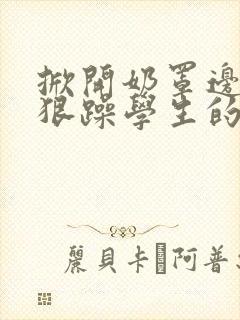 掀開奶罩邊
狠躁學生的
麗貝卡 阿普